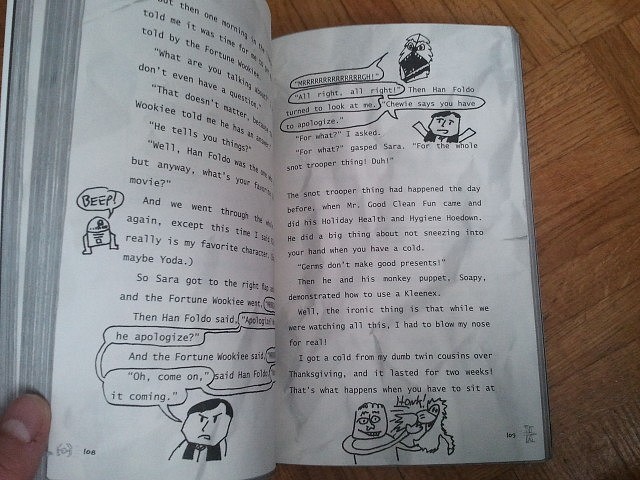 out then one morning in the
told me it was time for me to
told by the Fortune Wookiee
"What are you talking about?
don't even have a question."
"That doesn't matter, because
Wookiee told me he has an answer
"He tells you things?"
"Well, Han Foldo was the one who
but anyway, what's your favorite
movie?"
And we went through the whole
again, except this time I said
really is my favorite character. (
maybe Yoda.)
BEEP!
So Sara got to the right flap and
and the Fortune Wookiee went,
Then Han Foldo said, "Apologize?
he apologize?"
And the Fortune Wookiee said,
"Oh, come on," said Han Foldo.
it coming."
108
"MRRRRRRRRRRRRRRGH!"
"All right, all right!" Then Han Foldo
turned to look at me. "Chewie says you have
to apologize."
"For what?" I asked.
"For what?" gasped Sara. "For the whole
snot trooper thing! Duh!"
The snot trooper thing had happened the day
before, when Mr. Good Clean Fun came and
did his Holiday Health and Hygiene Hoedown.
He did a big thing about not sneezing into
your hand when you have a cold.
"Germs don't make good presents!"
Then he and his monkey puppet, Soapy,
demonstrated how to use a Kleenex.
Well, the ironic thing is that while we
were watching all this, I had to blow my nose
for real!
I got a cold from my dumb twin cousins over
Thanksgiving, and it lasted for two weeks!
That's what happens when you have to sit at
Honk!
109